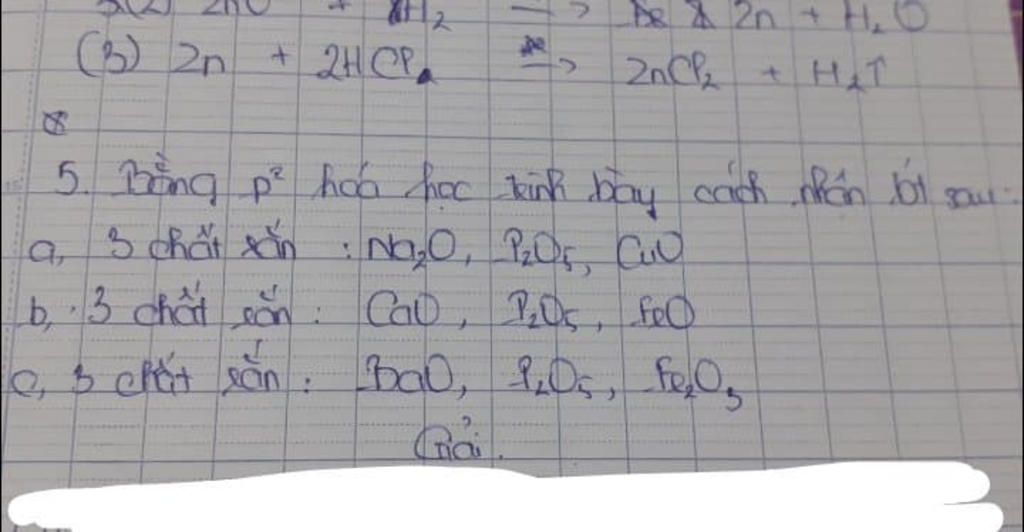 3(2) ZnO + H₂ → Zn + H₂O
(3) Zn + 2HCl → ZnCl₂ + H₂↑
5. Bằng p² hoá học trình bày cách nhận bt sau:
a, 3 chất rắn : Na₂O, P₂O₅, CuO
b, 3 chất rắn : CaO, P₂O₅, FeO
c, 3 chất rắn : BaO, P₂O₅, Fe₂O₃
Giải.